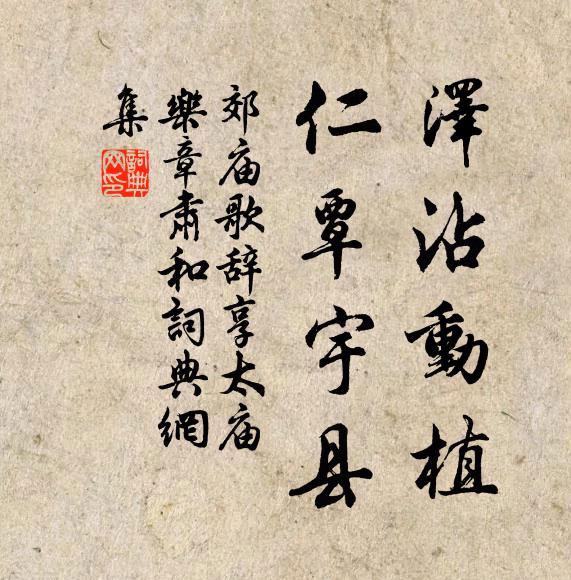 澤沾動植
仁覃宇县
郊庙歌辞享太庙
樂章肅和詞典網
集
詞典网印